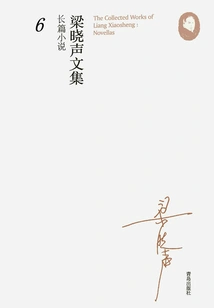 The Collected Works of
Liang Xiaosheng :
Novellas
6
梁晓声文集
长篇小说
梁晓声
青岛出版社